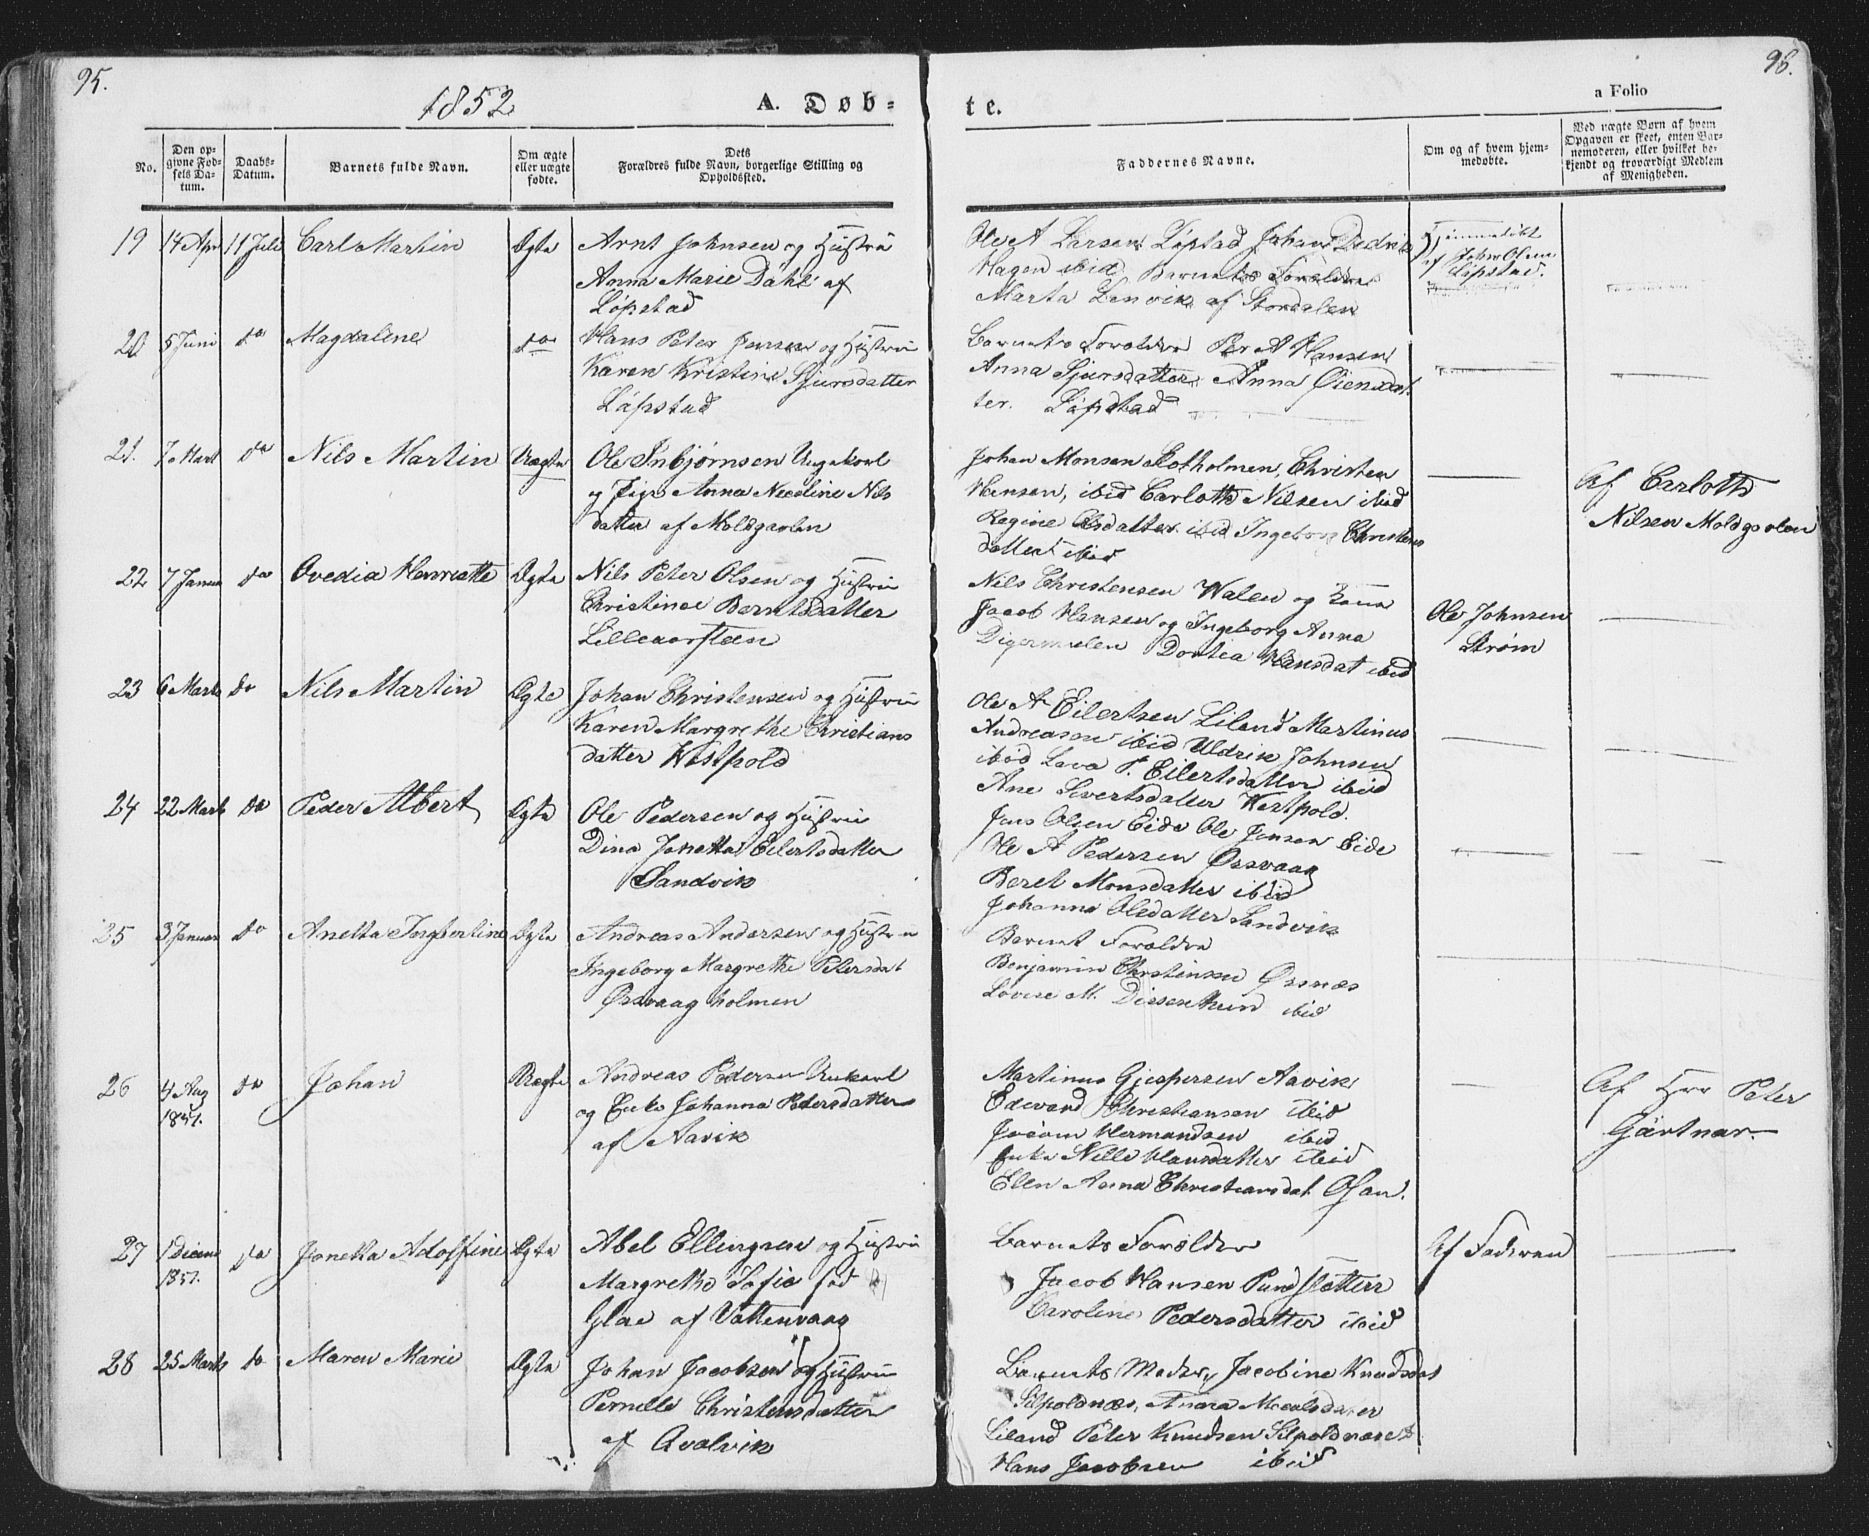 95.
1852
A. Døb-
No.
Den op-
givne Fød-
sels Da-
tum.
Daabs-
Datum.
Barnets fulde Navn.
Om ægte
eller uægte
fødte.
Dets
Forældres fulde Navn, borgerlige Stilling og
Opholdssted.
19 14 Apr 11 Juli Carl Martin Ægte Arnt Johnsen og Hustru
Anna Marie Dahl af
Löpstad
20 5 Juni do Magdalene do Hans Peter Jensen og Hustru
Karen Kristine Sjursdatter
Löpstad
21. 7 Mart do Nils Martin Uægte Ole Inbjørnsen Ungekarl
og Pige Anna Nicoline Nils
datter af Moldgaolen
22 7 Januar do Ovedia Henriette Ægte Nils Peter Olsen og Hustru
Christine Berntsdatter
Lillekorsteen
23 6 Marts do Nils Martin Ægte Johan Christensen og Hustru
Karen Margrethe Christians
datter Westpold
24 22 Marts do Peder Albert Ægte Ole Pedersen og Hustru
Dina Janetta Eilertsdatter
Sandvik
25 3 Januar do Anetta Ingbertine Ægte Andreas Andersen og Hustru
Ingeborg Margrethe Petersdat
Øssvaag holmen
26 4 Aug do Johan Uægte Andreas Pedersen Unkarl
1851. og Enke Johanna Pedersdatter
af Aavik
27 1 Decem do Jonetta Adolfine Ægte Abel Ellingsen og Hustru
1851. Margrethe Sofie fød
Gloe af Vattenvaag
28 25 Marts do Maren Marie Ægte Johan Jacobsen og Hustru
Pernelle Christensdatter
af Qvalvik
96.
te.
a Folio
Faddernes Navne.
Om og af hvem hjem-
medøbte.
Ved uægte Børn af hvem
Opgaven er skeet, enten Bar-
nemoderen, eller hvilket be-
kjendt og troværdigt Medlem
af Menigheden.
Ole A Larsen Löpstad Johan Dedrik
Hagen ibid Barnets Forældre
Marta Lenvik af Stordalen
Hjemmedøbt
af John Olsen
Löpstad.
Barnets Forældre Per A Hansen
Anna Sjursdatter Anna Øiensdat-
ter. Löpstad
Johan Monsen Rotholmen, Christen
Hansen, ibid Carloth Nilsen ibid
Regine Olsdatter ibid Ingeborg Christens
datter ibid
Af Carloth
Nilsen Moldgaolen
Nils Christensen Walen og Kone
Jacob Hansen og Ingeborg Anna
Digermulen Dortea Hansdat ibid
Ole Johnsen
Strøm
Ole A Eilertsen Liland Martinus
Andreassen ibid Uldrik Johnsen
ibid Lava P. Eilertsdatter ibid
Ane Sivertsdatter Westpold.
Jens Olsen Eide Ole Jensen Eide
Ole A Pedersen Øssvaag
Beret Monsdatter ibid
Johanna Olsdatter Sandvik
Barnet Forældre
Benjamin Christensen Øssnæs
Lovise M. Dissenthun ibid
Martinus Gjespersen Aavik
Edevard Christiansen ibid
Joeam Hermandsen ibid
Enke Nille Hansdatter ibid
Elen Anna Christiansdat Osan.
Af Hrr Peter
Gärtner
Barnets Forældre
Jacob Hansen Pundslettere
Caroline Pedersdatter ibid
Af Faderen
Barnets Moder, Jacobine Knudsdat
Silpoldnæs, Anna Nicolsdatter
Liland Peter Knudsen Silpoldnæset
Hans Jacobsen ibid